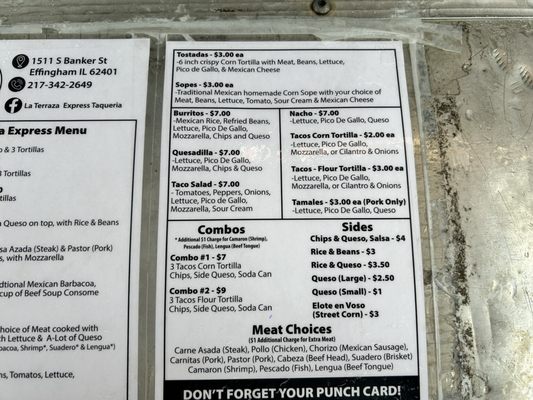 1511 S Banker St
Effingham IL 62401
217-342-2649
La Terraza Express Taqueria
a Express Menu
o & 3 Tortillas
3 Tortillas
Queso on top, with Rice & Beans
sa Azada (Steak) & Pastor (Pork)
s, with Mozzarella
dtional Mexican Barbacoa,
cup of Beef Soup Consome
hoice of Meat cooked with
th Lettuce & A-Lot of Queso
bacoa, Shrimp*, Suadero* & Lengua*)
ns, Tomatos, Lettuce,
Tostadas - $3.00 ea
-6 inch crispy Corn Tortilla with Meat, Beans, Lettuce,
Pico de Gallo, & Mexican Cheese
Sopes - $3.00 ea
-Traditional Mexican homemade Corn Sope with your choice of
Meat, Beans, Lettuce, Tomato, Sour Cream & Mexican Cheese
Burritos - $7.00
-Mexican Rice, Refried Beans,
Lettuce, Pico De Gallo,
Mozzarella, Chips and Queso
Quesadilla - $7.00
-Lettuce, Pico De Gallo,
Mozzarella, Chips & Queso
Taco Salad - $7.00
- Tomatoes, Peppers, Onions,
Lettuce, Pico De Gallo,
Mozzarella, Sour Cream
Nacho - $7.00
-Lettuce, Pico De Gallo, Queso
Tacos Corn Tortilla - $2.00 ea
-Lettuce, Pico De Gallo,
Mozzarella, or Cilantro & Onions
Tacos - Flour Tortilla - $3.00 ea
-Lettuce, Pico De Gallo,
Mozzarella, or Cilantro & Onions
Tamales - $3.00 ea (Pork Only)
-Lettuce, Pico De Gallo, Queso
Combos
* Additional $1 Charge for Camaron (Shrimp),
Pescado (Fish), Lengua (Beef Tongue)
Combo #1 - $7
3 Tacos Corn Tortilla
Chips, Side Queso, Soda Can
Combo #2 - $9
3 Tacos Flour Tortilla
Chips, Side Queso, Soda Can
Sides
Chips & Queso, Salsa - $4
Rice & Beans - $3
Rice & Queso - $3.50
Queso (Large) - $2.50
Queso (Small) - $1
Elote en Voso
(Street Corn) - $3
Meat Choices
($1 Additional Charge for Extra Meat)
Carne Asada (Steak), Pollo (Chicken), Chorizo (Mexican Sausage),
Carnitas (Pork), Pastor (Pork), Cabeza (Beef Head), Suadero (Brisket)
Camaron (Shrimp), Pescado (Fish), Lengua (Beef Tongue)
DON'T FORGET YOUR PUNCH CARD!